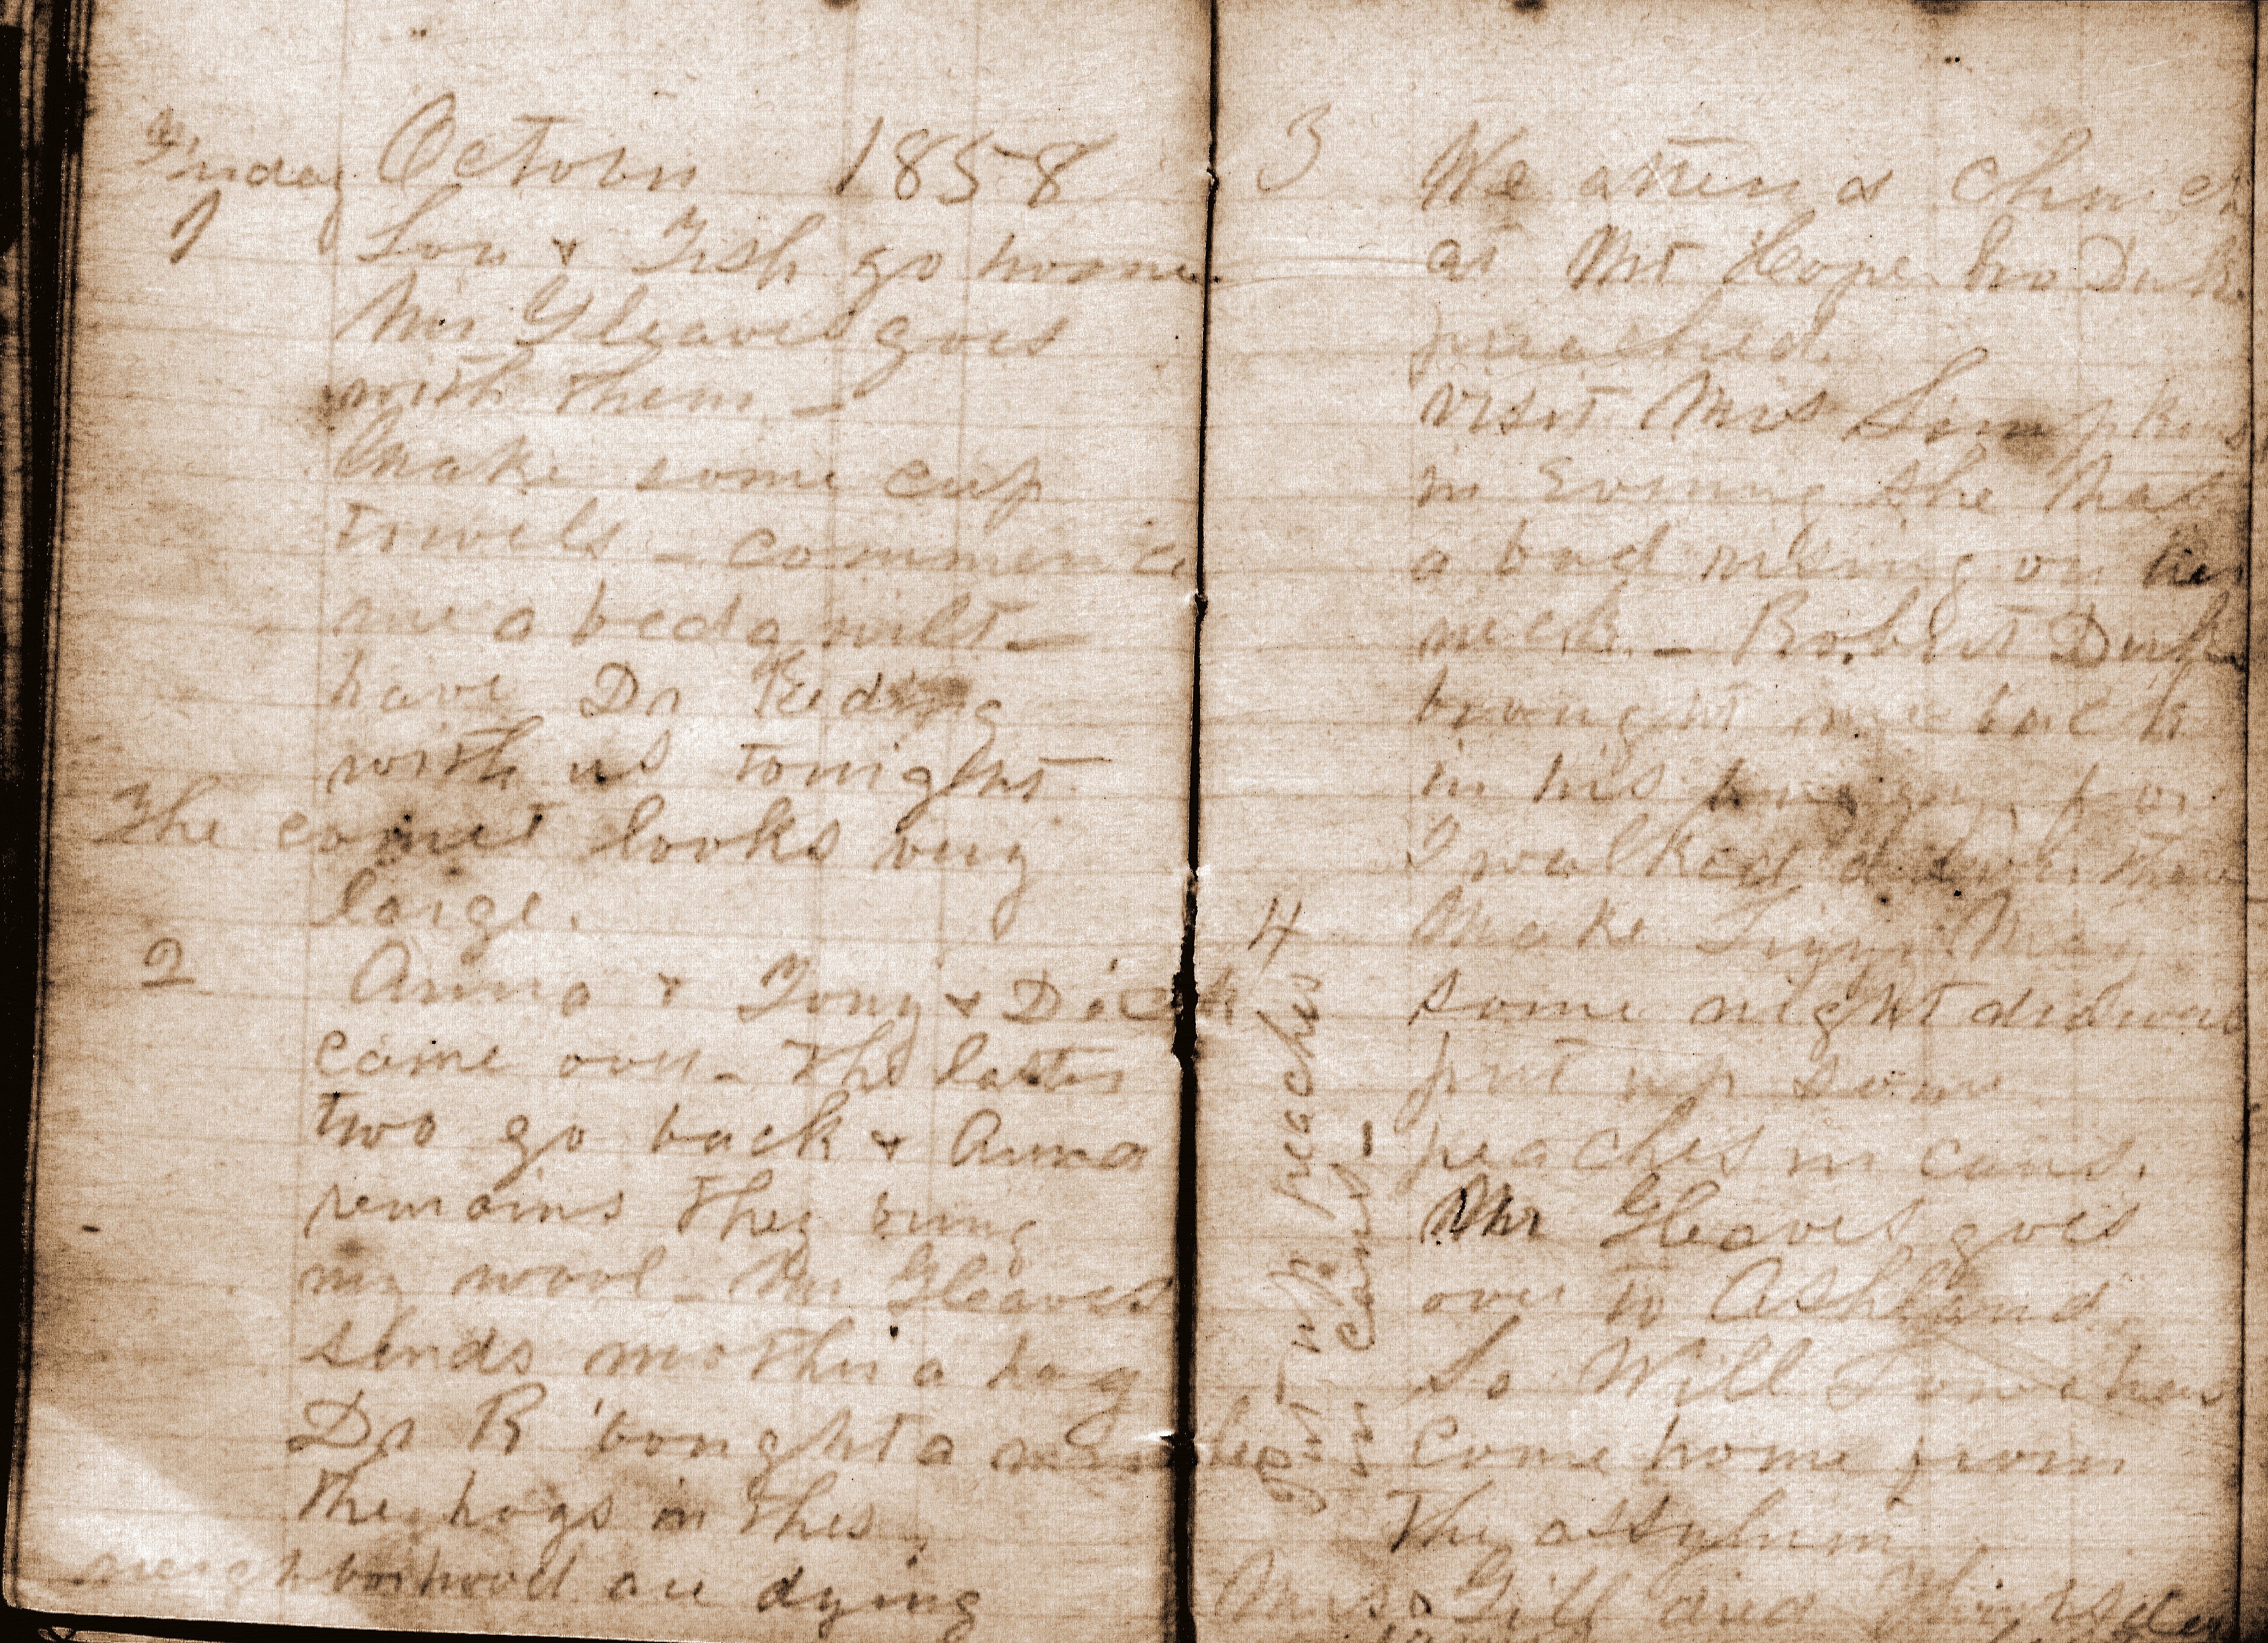 Friday October 1858
1 Lou & Tish go home
Mr Gleaves goes
with them -
Make some cup
towels - commence
me a bed quilt -
have Dr
with us tonight
The comet looks very
large.
2 Anna & Tony & Dick
came over - The latter
two go back & Anna
remains They
my wool - Mr Gleaves
sends mother a hog
Dr R bought a
The hogs in this
neighborhood are dying
3 We attend church
at Mt Hope Bro Duke
preached.
visit Mrs Simpkins
in Evening she has
a bad rising on her
neck - Robert Duke
brought me back
in his buggy, for
I walked down there
4 Make Lizzie May
some night
put up some
peaches in cans.
Mr Gleaves goes
over to Ashland
So Will
Come home from
The assylum
Mrs Gill died
Put up peaches
in cans -